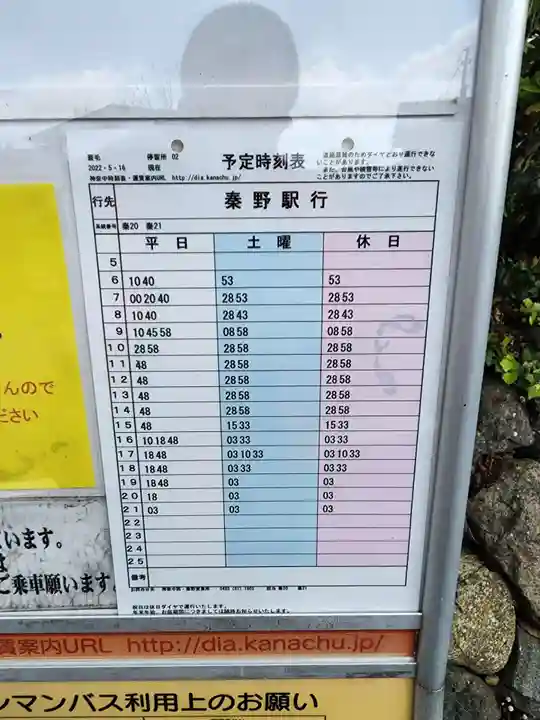 蓑毛 停留所 02
2022・5・16 現在
神奈中時刻表・運賃案内URL http://dia.kanachu.jp/
予定時刻表
道路混雑のためダイヤどおり運行できないことがあります。
また、台風や積雪等により運行できないことがありますのでご了承下さい。
行先 秦野駅行
系統番号 秦20 秦21
平日 土曜 休日
5
6 10 40 53 53
7 00 20 40 28 53 28 53
8 10 40 28 43 28 43
9 10 45 58 08 58 08 58
10 28 58 28 58 28 58
11 48 28 58 28 58
12 48 28 58 28 58
13 48 28 58 28 58
14 48 28 58 28 58
15 48 15 33 15 33
16 10 18 48 03 33 03 33
17 18 48 03 10 33 03 10 33
18 18 48 03 33 03 33
19 18 48 03 03
20 18 03 03
21 03 03 03
22
23
24
25
備考
祝日は休日ダイヤで運行いたします。
年末年始、お盆期間につきましては随時お知らせいたします。
んので
ださい
います。
は
ご乗車願います。
賃案内URL http://dia.kanachu.jp/
ンマンバス利用上のお願い